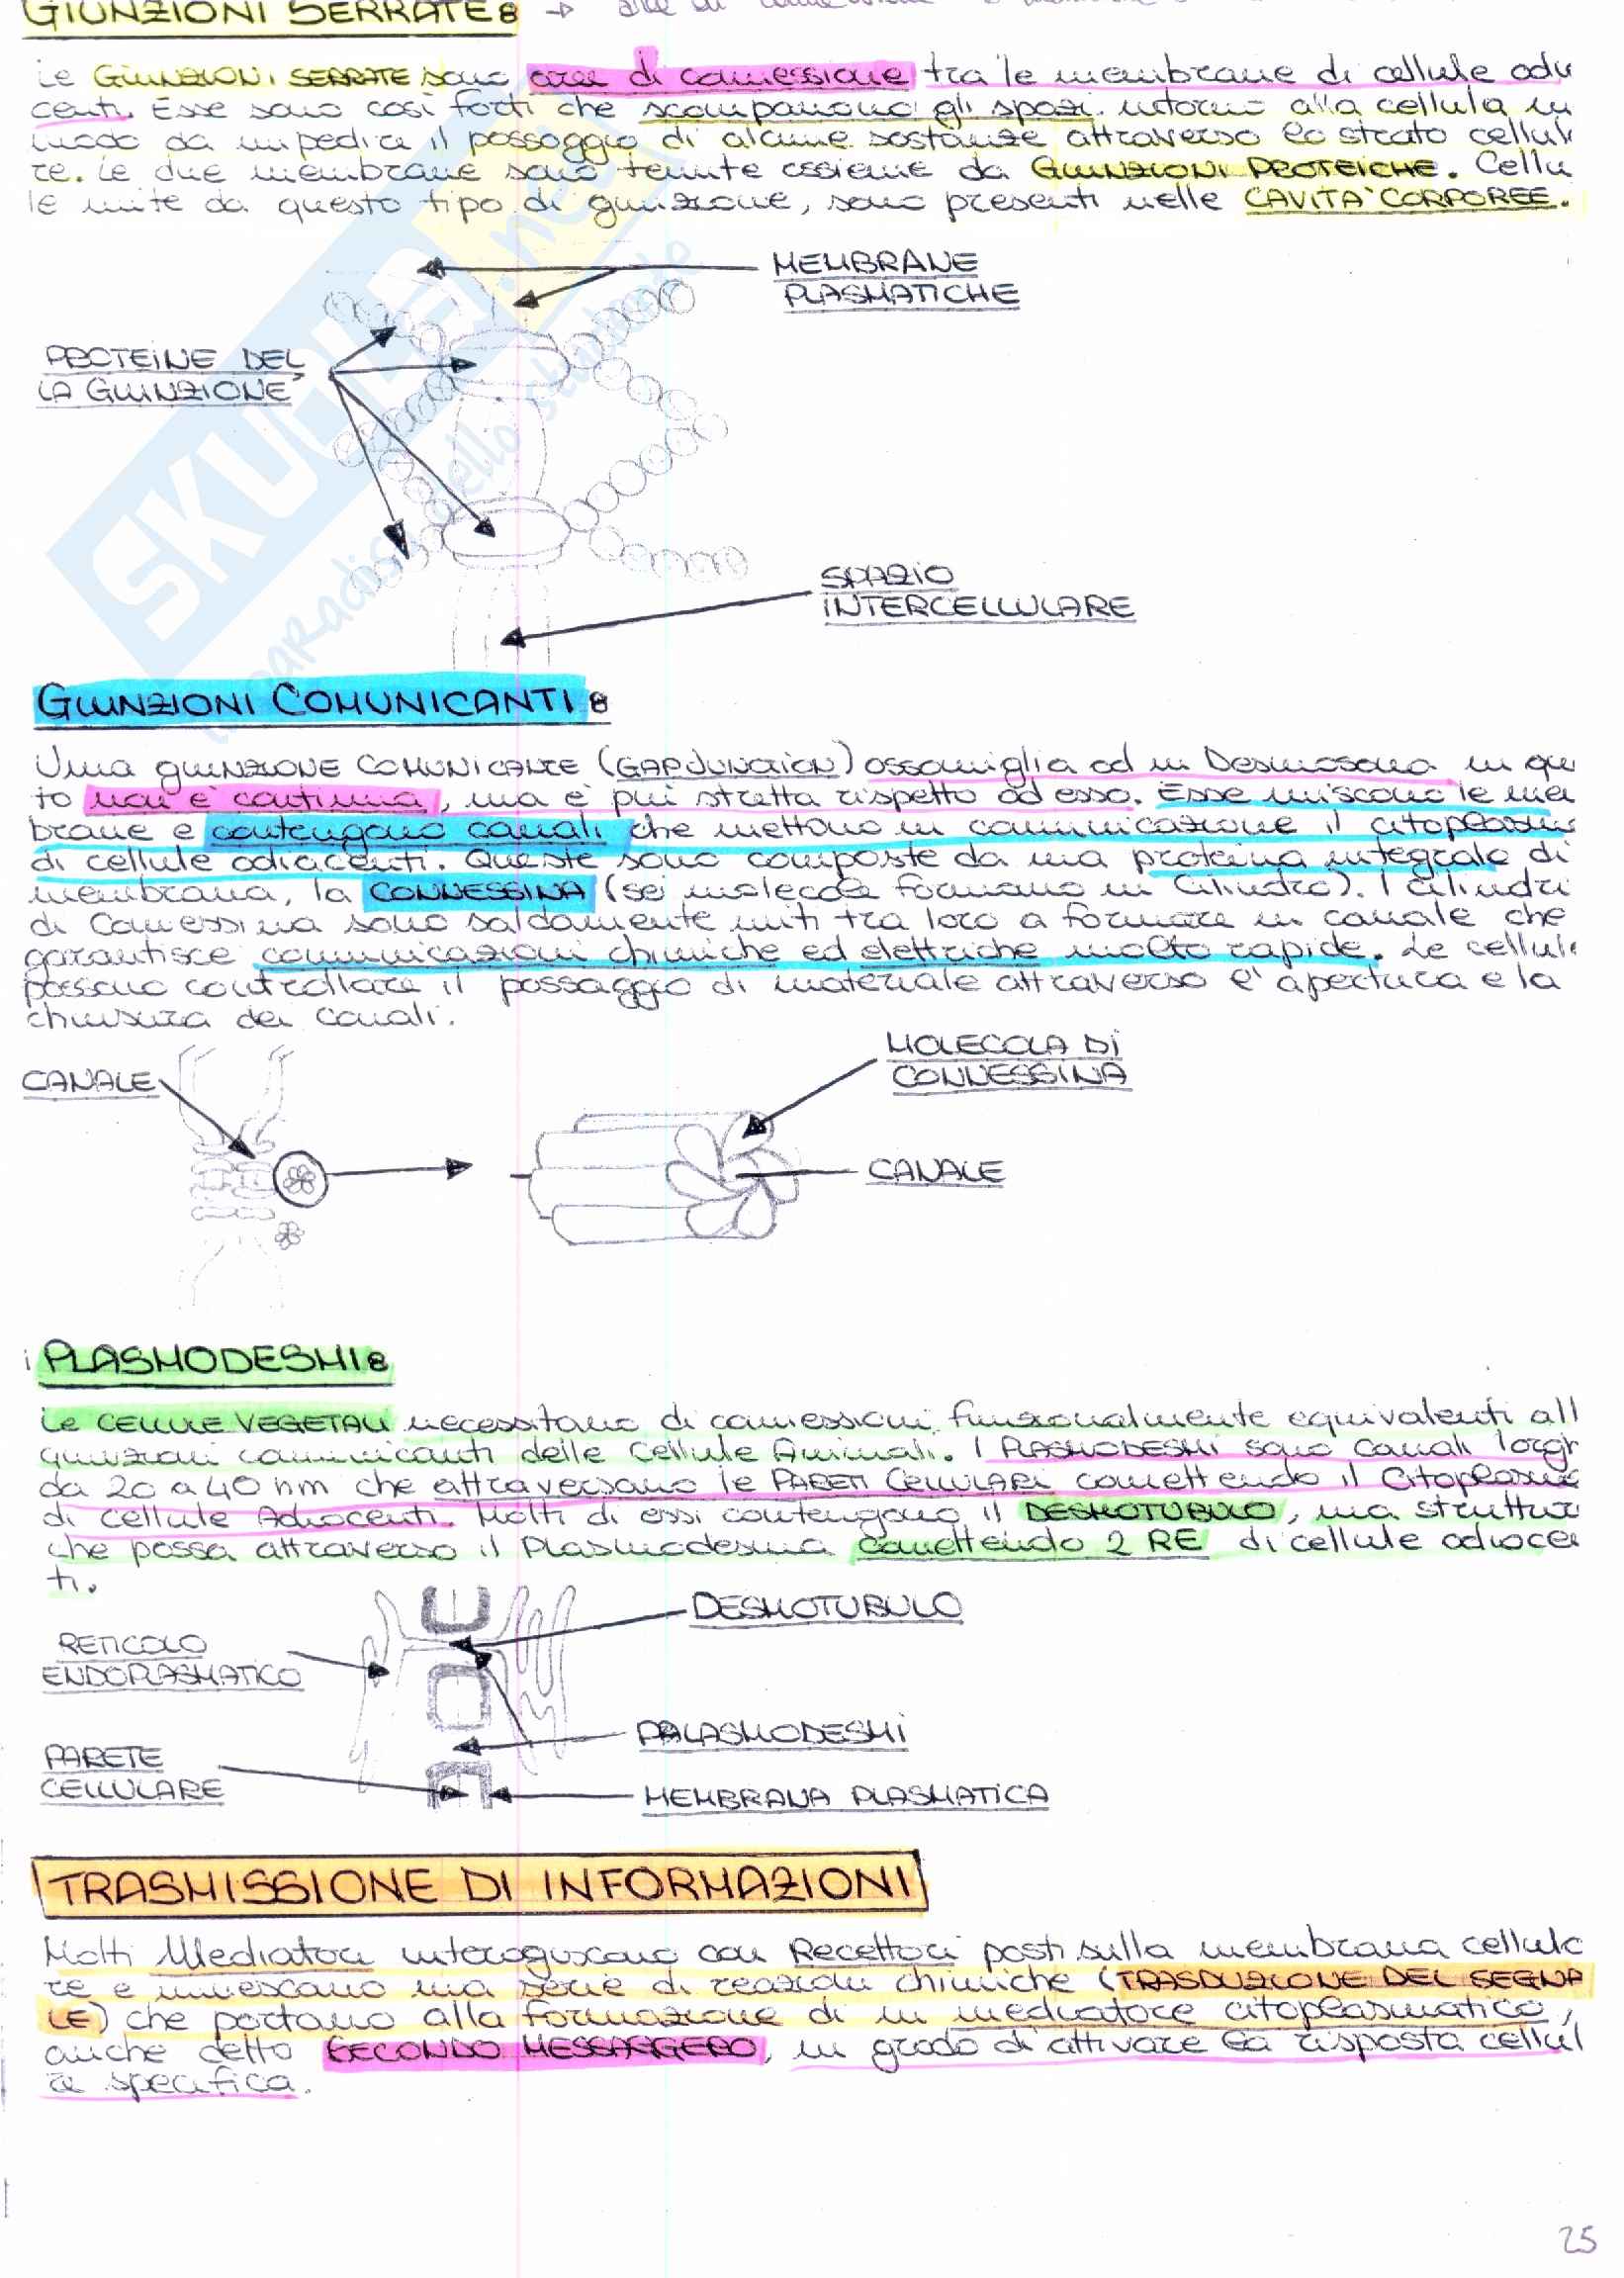 GIUNZIONI SERRATE: → aree di connessione
Le GIUNZIONI SERRATE sono aree di connessione tra le membrane di cellule adia
centi. Esse sono così forti che scompaiono gli spazi intorno alla cellula in
modo da impedire il passaggio di alcune sostanze attraverso lo strato cellula
re. Le due membrane sono tenute assieme da GIUNZIONI PROTEICHE. Cellu
le unite da questo tipo di giunzione, sono presenti nelle CAVITA' CORPOREE.
MEMBRANE
PLASMATICHE
PROTEINE DEL
LA GIUNZIONE
SPAZIO
INTERCELLULARE
SKUOLA.net
il paradiso dello studente
GIUNZIONI COMUNICANTI:
Una giunzione COMUNICANTE (GAP JUNCTION) assomiglia ad un Desmosoma in qua
to non è continua, ma è più stretta rispetto ad esso. Esse uniscono le mem
brane e contengono canali che mettono in comunicazione il citoplasma
di cellule adiacenti. Queste sono composte da una proteina integrale di
membrana, la CONNESSINA (sei molecole formano un Cilindro). I cilindri
di Connessina sono saldamente uniti tra loro a formare un canale che
garantisce comunicazioni chimiche ed elettriche molto rapide. Le cellule
possono controllare il passaggio di materiale attraverso l'apertura e la
chiusura dei canali.
CANALE
MOLECOLA DI
CONNESSINA
CANALE
i PLASMODESMI:
Le CELLULE VEGETALI necessitano di connessioni funzionalmente equivalenti all
giunzioni comunicanti delle Cellule Animali. I PLASMODESMI sono canali largh
da 20 a 40 nm che attraversano le PARETI CELLULARI connettendo il Citoplasma
di cellule Adiacenti. Molti di essi contengono il DESMOTUBULO, una struttura
che passa attraverso il Plasmodesma connettendo 2 RE di cellule adiacen
ti.
DESMOTUBULO
RETICOLO
ENDOPLASMATICO
PALASMODESMI
PARETE
CELLULARE
MEMBRANA PLASMATICA
TRASMISSIONE DI INFORMAZIONI
Molti Mediatori interagiscono con Recettori posti sulla membrana cellula
re e innescano una serie di reazioni chimiche (TRASDUZIONE DEL SEGNA
LE) che portano alla formazione di un mediatore citoplasmatico,
anche detto SECONDO MESSAGGERO, in grado di attivare la risposta cellul
re specifica.
25